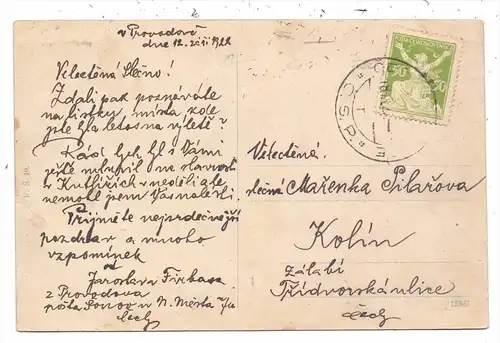 v Provodově
dne 12. září 1922
Velectěná Slečno!
Zdali pak poznáváte
na lístku, místa kde
jste byla letos na výletě?
Rád bych byl s Vámi
ještě mluvil na slavnosti
v neděli ale
nemohl jsem Vás nalézti.
Přijměte nejsrdečnější
pozdrav a mnoho
vzpomínek
od
Jaroslav Firbas
z Provodova
pošta u N. Města n/M
Čechy
Velectěná
slečna Mařenka Pilařova
Kolín
Zálabí
Třídvorská ulice
Čechy
50 50
ČSP